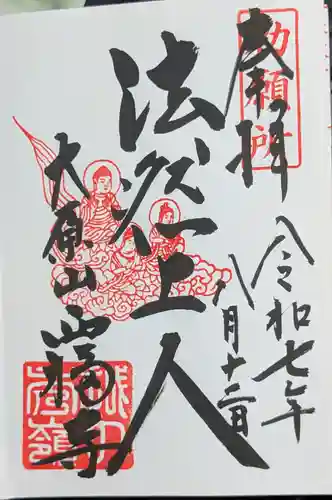 勅願所
奉拝
令和七年
八月十二日
法然上人
大原山
西福寺